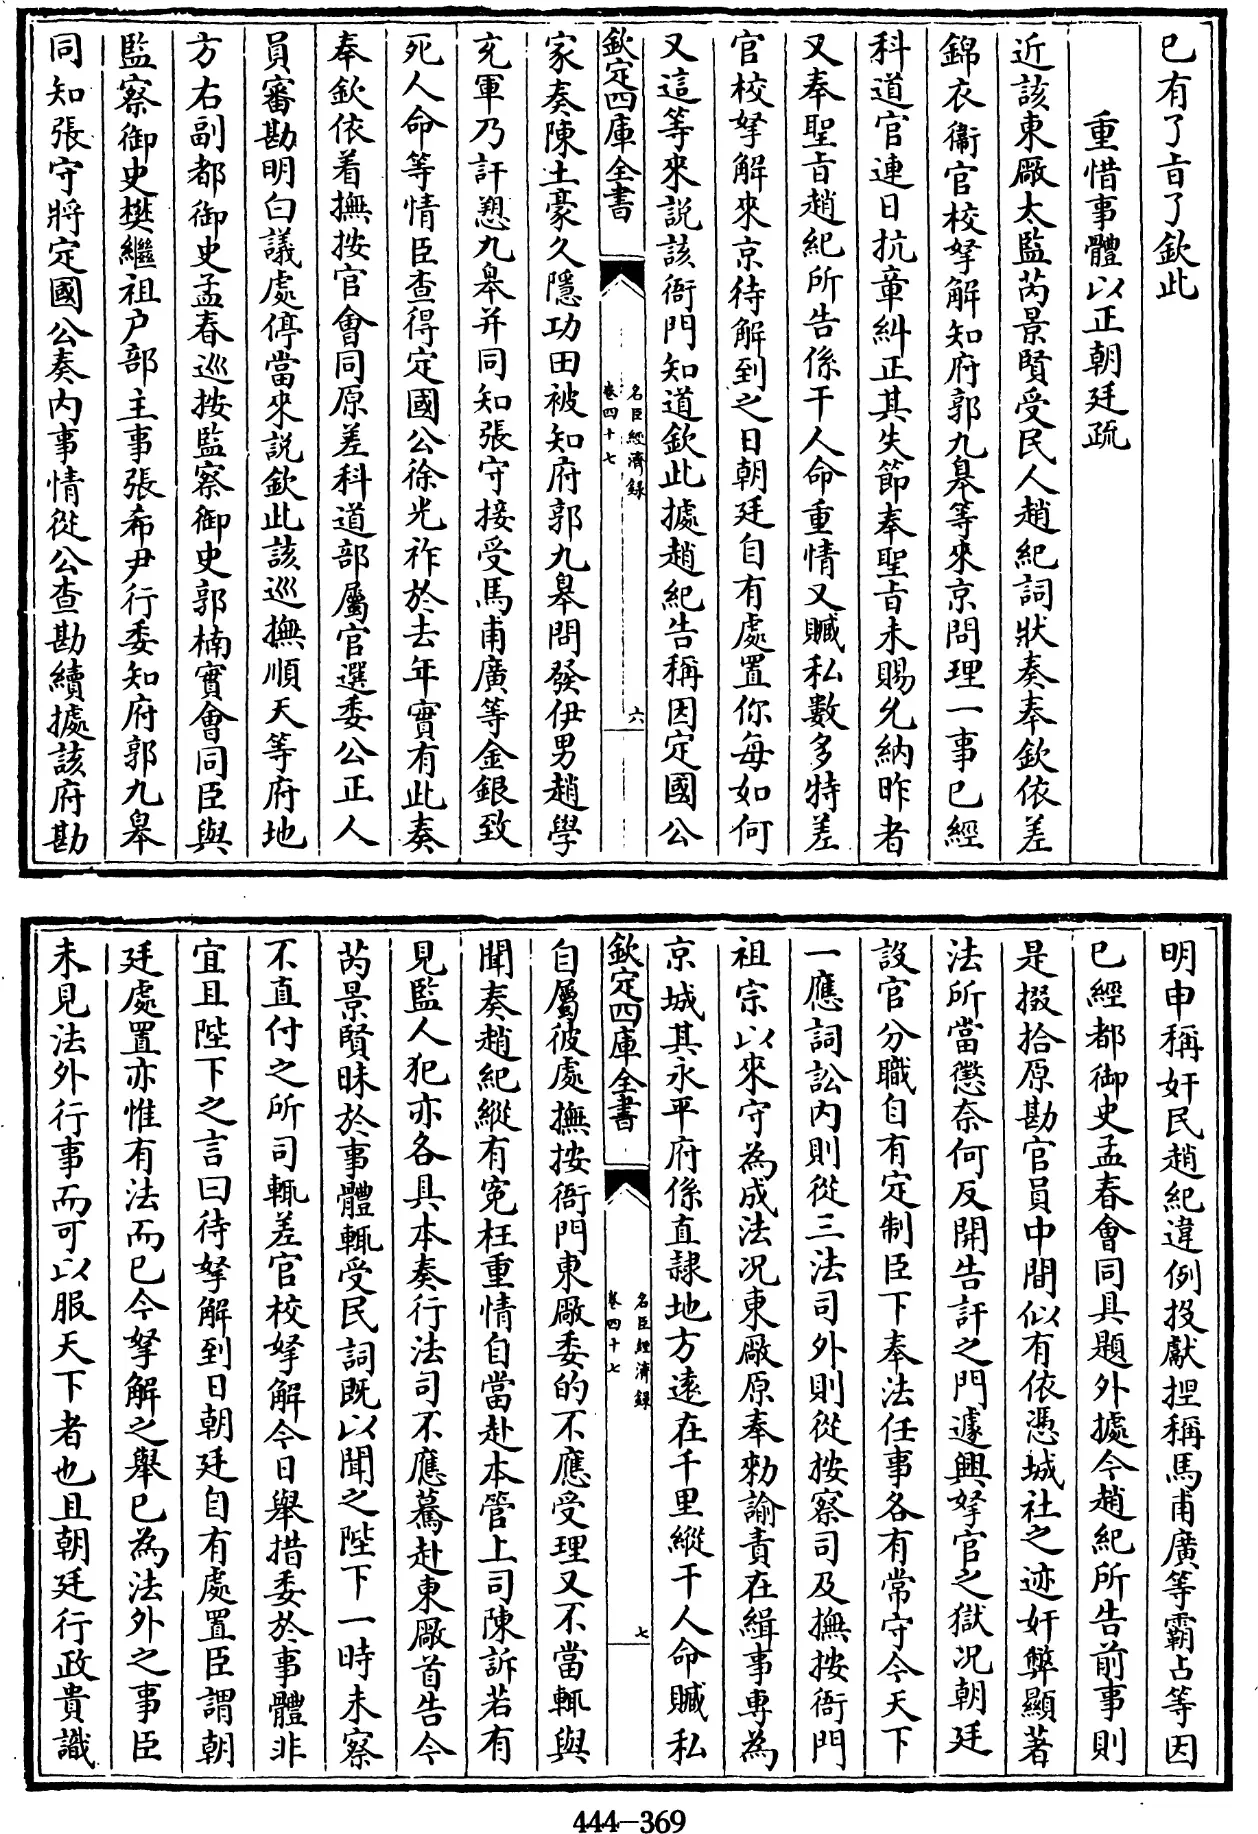 已有了旨了欽此
重惜事體以正朝廷疏
近該東廠太監芮景賢受民人趙紀詞狀奏奉欽依差
錦衣衛官校拏解知府郭九臯等來京問理一事已經
科道官連日抗章糾正其失節奉聖旨未賜允納昨者
又奉聖旨趙紀所告係干人命重情又贓私數多特差
官校拏解來京待解到之日朝廷自有處置你每如何
又這等來説該衙門知道欽此據趙紀告稱因定國公
欽定四庫全書
名臣經濟録
卷四十七
六
家奏陳土豪久隱功田被知府郭九臯問發伊男趙學
充軍乃訐愬九臯并同知張守接受馬甫廣等金銀致
死人命等情臣查得定國公徐光祚於去年實有此奏
奉欽依着撫按官會同原差科道部屬官選委公正人
員審勘明白議處停當來説欽此該巡撫順天等府地
方右副都御史孟春巡按監察御史郭楠實會同臣與
監察御史樊繼祖户部主事張希尹行委知府郭九臯
同知張守將定國公奏内事情從公查勘續據該府勘
明申稱奸民趙紀違例投獻揑稱馬甫廣等霸占等因
已經都御史孟春會同具題外據今趙紀所告前事則
是掇拾原勘官員中間似有依憑城社之迹奸弊顯著
法所當懲奈何反開告訐之門遽興拏官之獄况朝廷
設官分職自有定制臣下奉法任事各有常守今天下
一應詞訟内則從三法司外則從按察司及撫按衙門
祖宗以來守為成法况東廠原奉勑諭責在緝事專為
京城其永平府係直隸地方遠在千里縱干人命贓私
欽定四庫全書
名臣經濟録
卷四十七
七
自屬彼處撫按衙門東廠委的不應受理又不當輒與
聞奏趙紀縱有寃枉重情自當赴本管上司陳訴若有
見監人犯亦各具本奏行法司不應驀赴東廠首告今
芮景賢昧於事體輒受民詞既以聞之陛下一時未察
不直付之所司輒差官校拏解今日舉措委於事體非
宜且陛下之言曰待拏解到日朝廷自有處置臣謂朝
廷處置亦惟有法而已今拏解之舉已為法外之事臣
未見法外行事而可以服天下者也且朝廷行政貴識
444-369